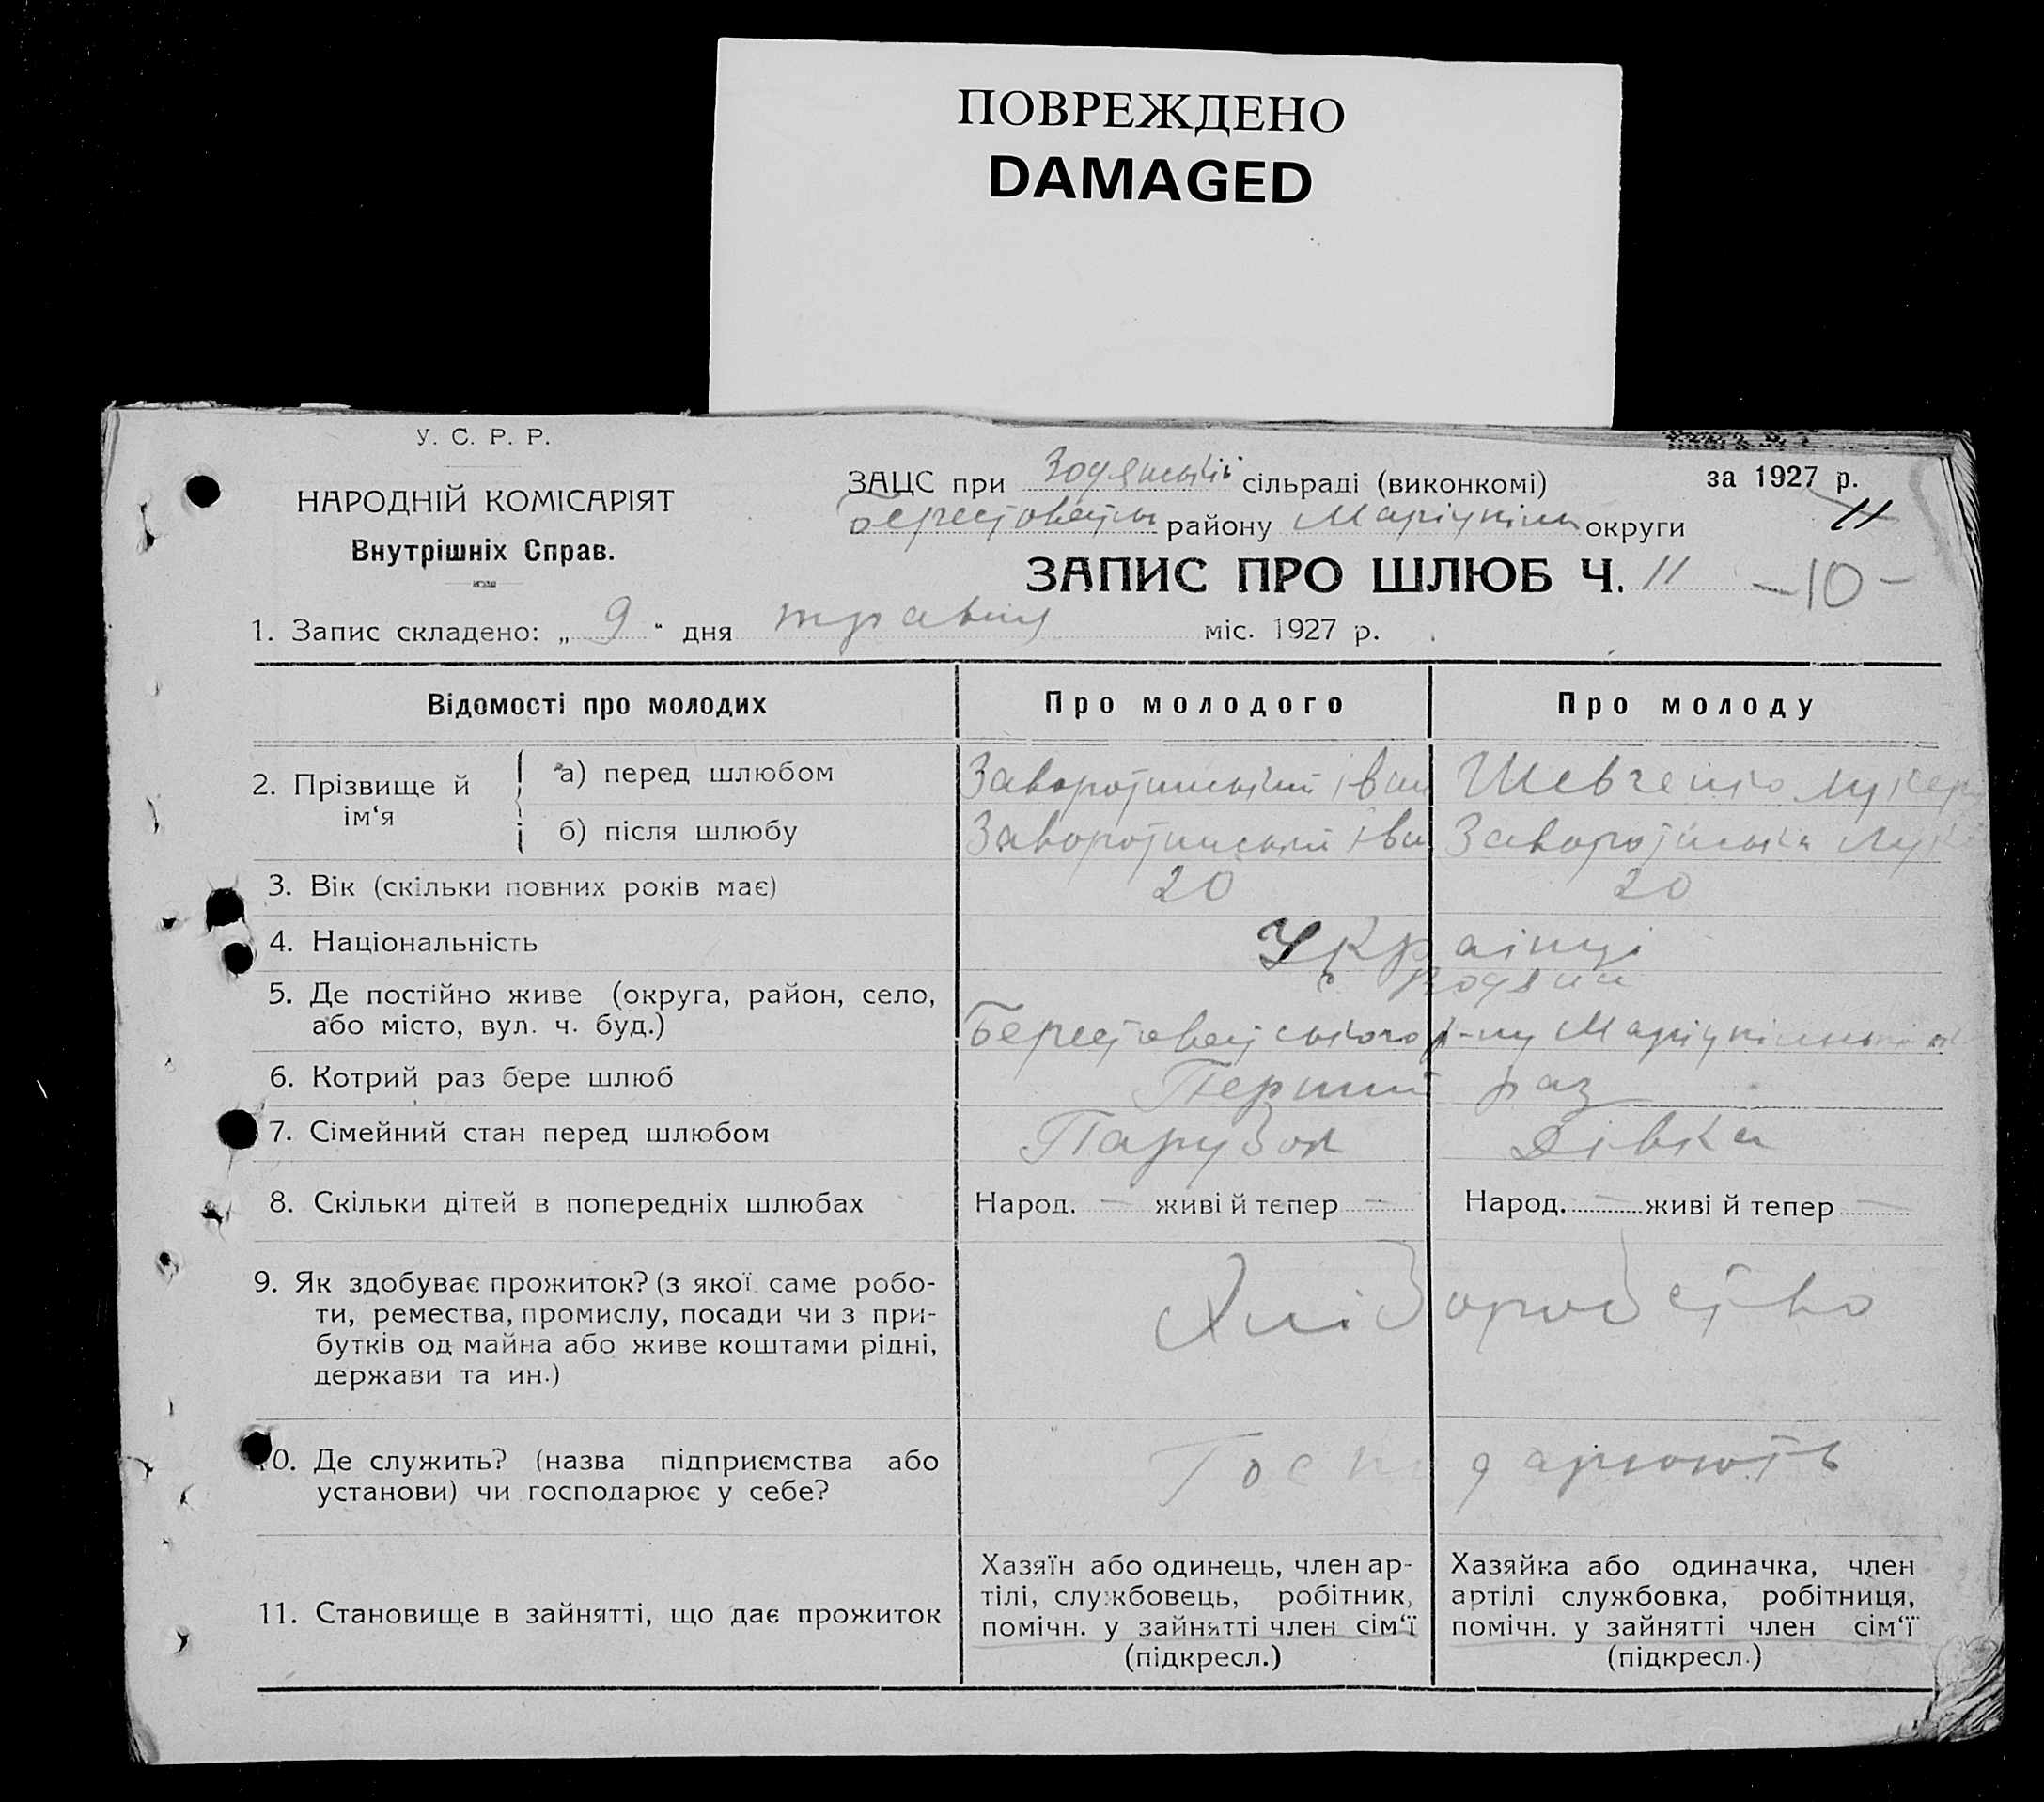 ПОВРЕЖДЕНО
DAMAGED
У. С. Р. Р.
НАРОДНІЙ КОМІСАРІЯТ
Внутрішніх Справ.
ЗАЦС при сільраді (виконкомі)
за 1927 р.
району Маріупільс округи
11
ЗАПИС ПРО ШЛЮБ Ч. 11 -10-
1. Запис складено: „ 9 “ дня травня міс. 1927 р.
Відомості про молодих Про молодого Про молоду
2. Прізвище й ім‘я
а) перед шлюбом Заворотинський Іван Шевченко Лукер
б) після шлюбу Заворотинський Іва Заворотинська Лук
3. Вік (скільки повних років має) 20 20
4. Національність Українці
5. Де постійно живе (округа, район, село,
або місто, вул. ч. буд.)
Берестовецького р-ну
6. Котрий раз бере шлюб Перший раз
7. Сімейний стан перед шлюбом Парубок Дівка
8. Скільки дітей в попередніх шлюбах Народ. — живі й тепер — Народ. — живі й тепер —
9. Як здобуває прожиток? (з якої саме робо-
ти, ремества, промислу, посади чи з при-
бутків од майна або живе коштами рідні,
держави та ин.)
Хліборобство
10. Де служить? (назва підприємства або
установи) чи господарює у себе?
Господарюють
11. Становище в зайнятті, що дає прожиток
Хазяїн або одинець, член ар-
тілі, службовець, робітник,
помічн. у зайнятті член сім‘ї
(підкресл.)
Хазяйка або одиначка, член
артілі службовка, робітниця,
помічн. у зайнятті член сім‘ї
(підкресл.)